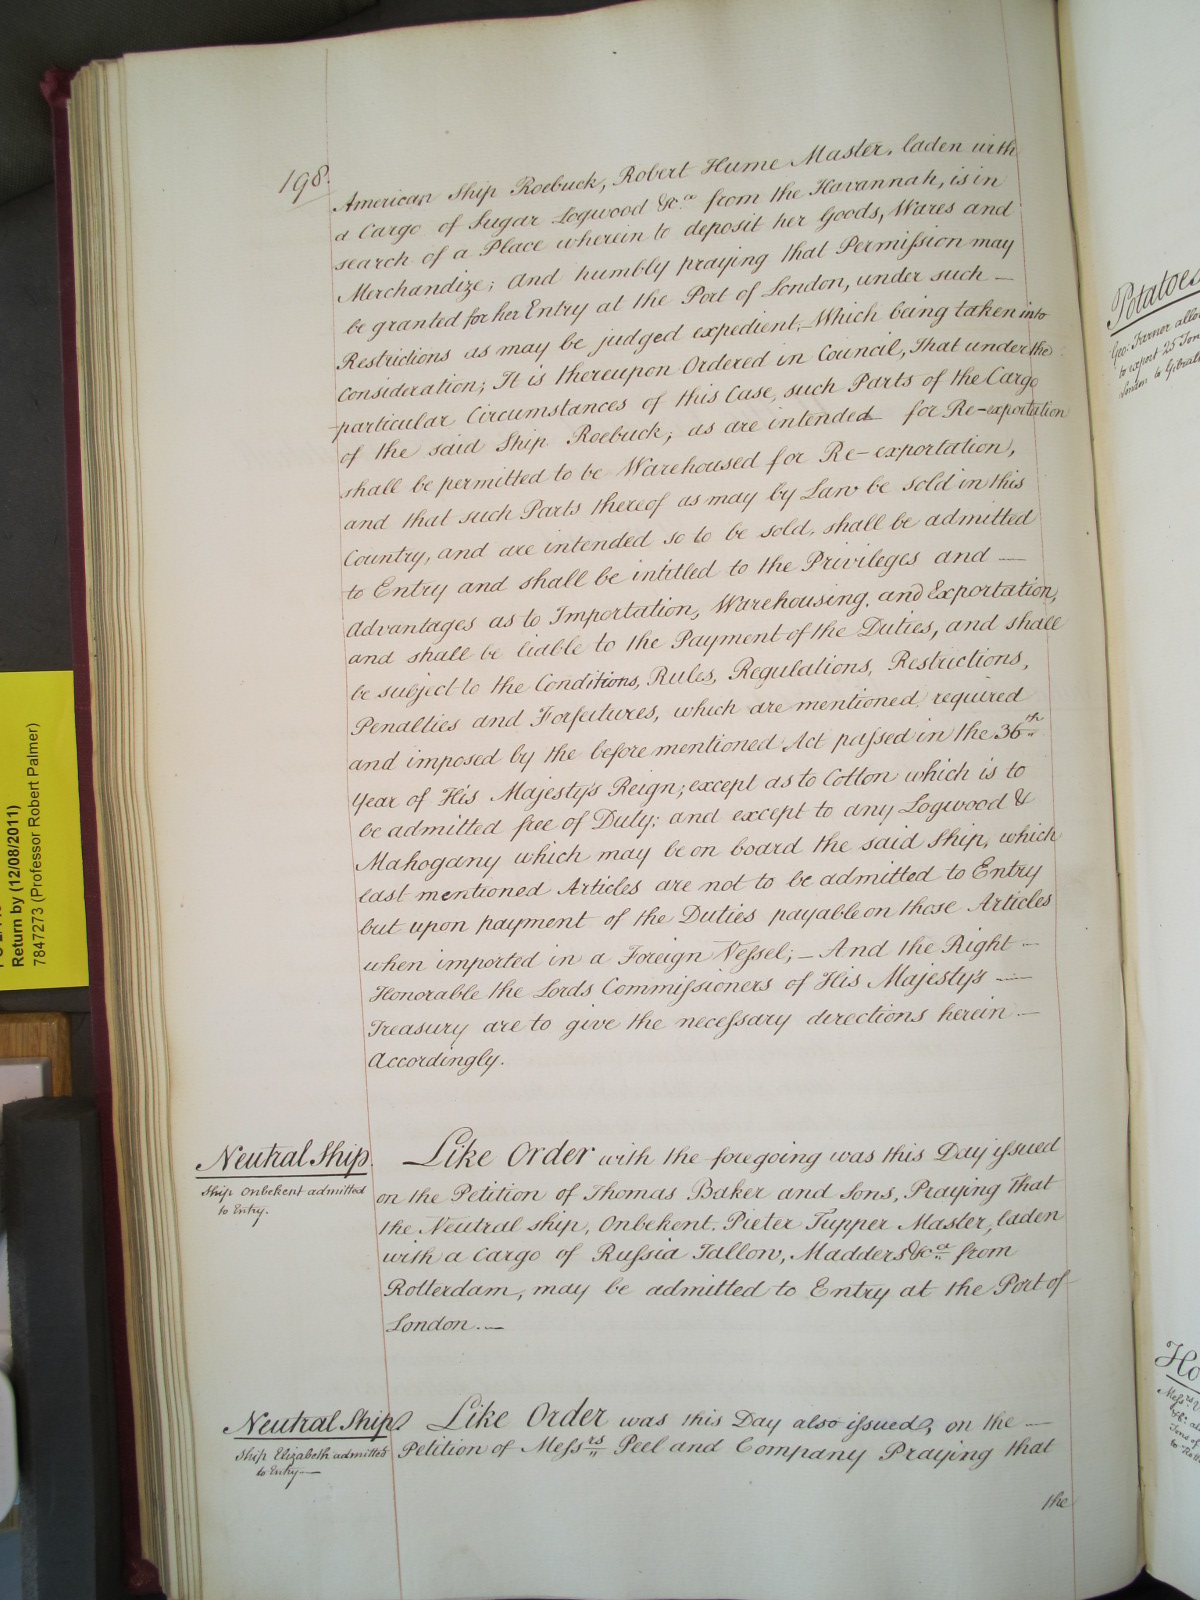 198.
American Ship Roebuck, Robert Hume Master, laden with
a Cargo of Sugar Logwood &c.a from the Havannah, is in
search of a Place wherein to deposit her Goods, Wares and
Merchandize; and humbly praying that Permission may
be granted for her Entry at the Port of London, under such —
Restrictions as may be judged expedient, — Which being taken into
Consideration; It is thereupon Ordered in Council, That under the
particular Circumstances of this Case, such Parts of the Cargo
of the said Ship Roebuck, as are intended for Re-exportation
shall be permitted to be Warehoused for Re-exportation,
and that such Parts thereof as may by Law be sold in this
Country, and are intended so to be sold, shall be admitted
to Entry and shall be intitled to the Privileges and —
Advantages as to Importation, Warehousing, and Exportation,
and shall be liable to the Payment of the Duties, and shall
be subject to the Conditions, Rules, Regulations, Restrictions,
Penalties and Forfeitures, which are mentioned required
and imposed by the before mentioned Act passed in the 36th
Year of His Majesty's Reign; except as to Cotton which is to
be admitted free of Duty; and except to any Logwood &
Mahogany which may be on board the said Ship, which
last mentioned Articles are not to be admitted to Entry
but upon payment of the Duties payable on those Articles
when imported in a Foreign Vessel; — And the Right —
Honorable the Lords Commissioners of His Majesty's —
Treasury are to give the necessary directions herein —
Accordingly.
Neutral Ship
Ship Onbekent admitted
to Entry.
Like Order with the foregoing was this Day issued
on the Petition of Thomas Baker and Sons, Praying That
the Neutral ship, Onbekent, Pieter Tupper Master, laden
with a Cargo of Russia Tallow, Madders &c.a from
Rotterdam, may be admitted to Entry at the Port of
London. —
Neutral Ship
Ship Elizabeth admitted
to Entry —
Like Order was this Day also issued, on the —
Petition of Messrs Peel and Company Praying that
the
Return by (12/08/2011)
7847273 (Professor Robert Palmer)
Potatoes
Geo: Farner
to export 25 Ton
London to
Ho